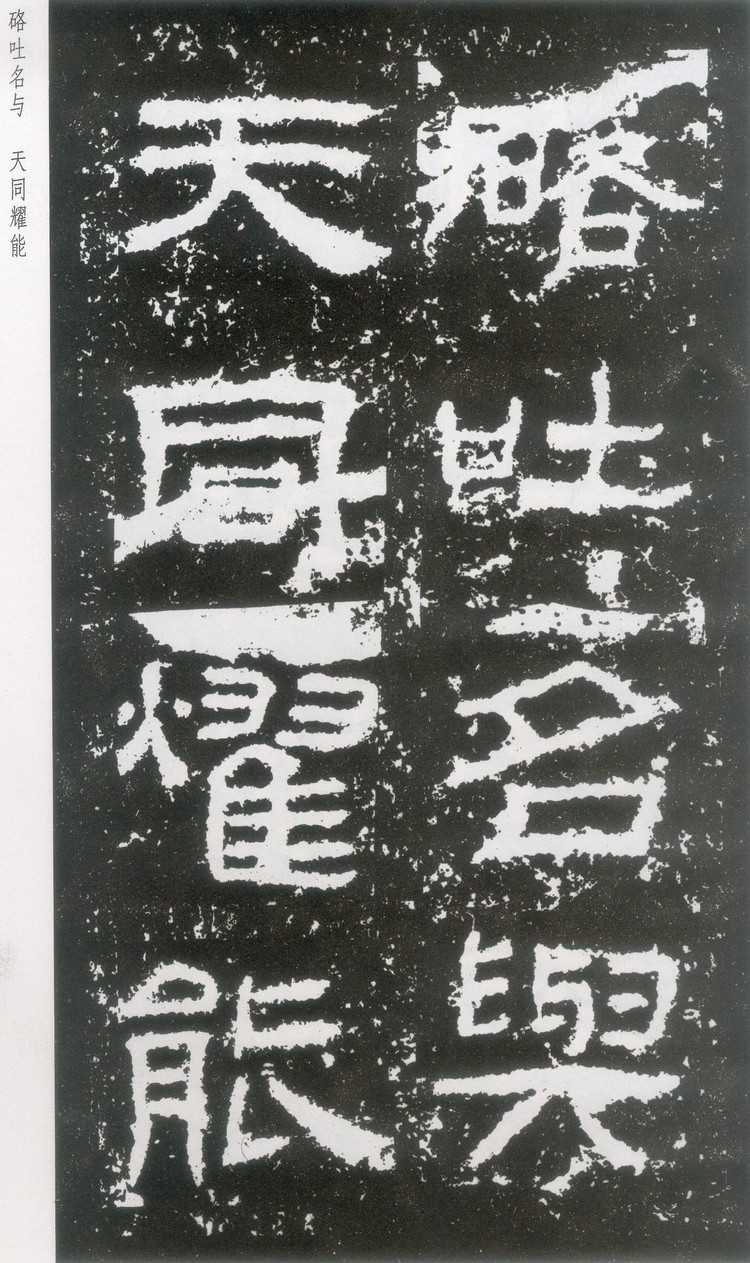 硌吐名與
天同耀能
硌吐名与 天同耀能